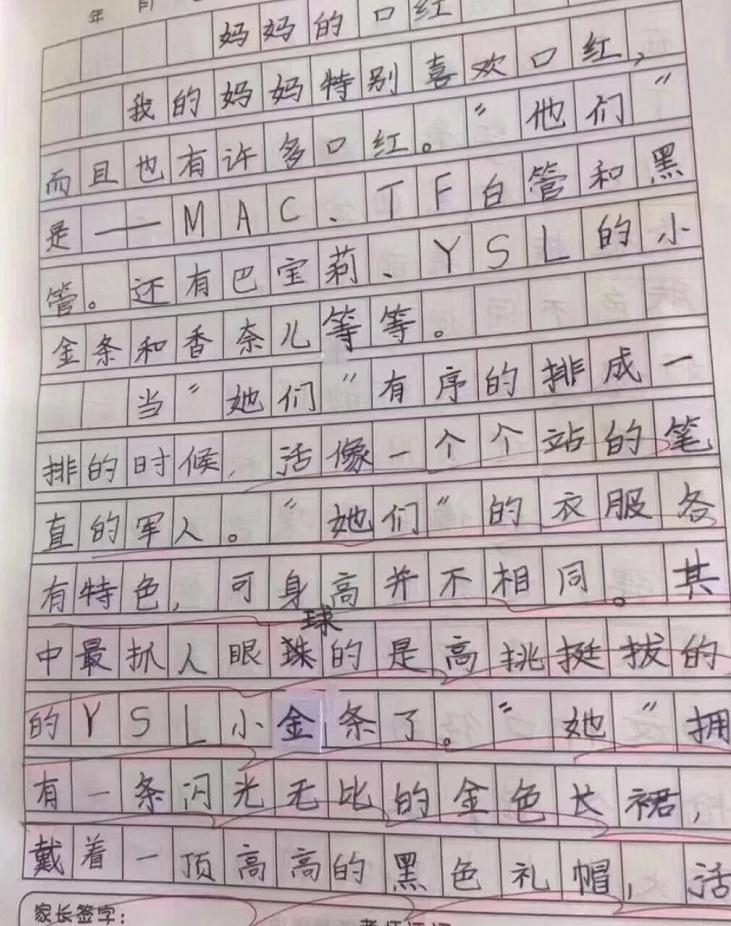 年 月
妈妈的口红
我的妈妈特别喜欢口红,
而且也有许多口红。“他们”
是——MAC、TF白管和黑
管。还有巴宝莉、YSL的小
金条和香奈儿等等。
当“她们”有序的排成一
排的时候,活像一个个站的笔
直的军人。“她们”的衣服各
有特色,可身高并不相同。其
球
中最抓人眼珠的是高挑挺拔的
的YSL小金条了。“她”拥
有一条闪光无比的金色长裙,
戴着一顶高高的黑色礼帽,活
家长签字: